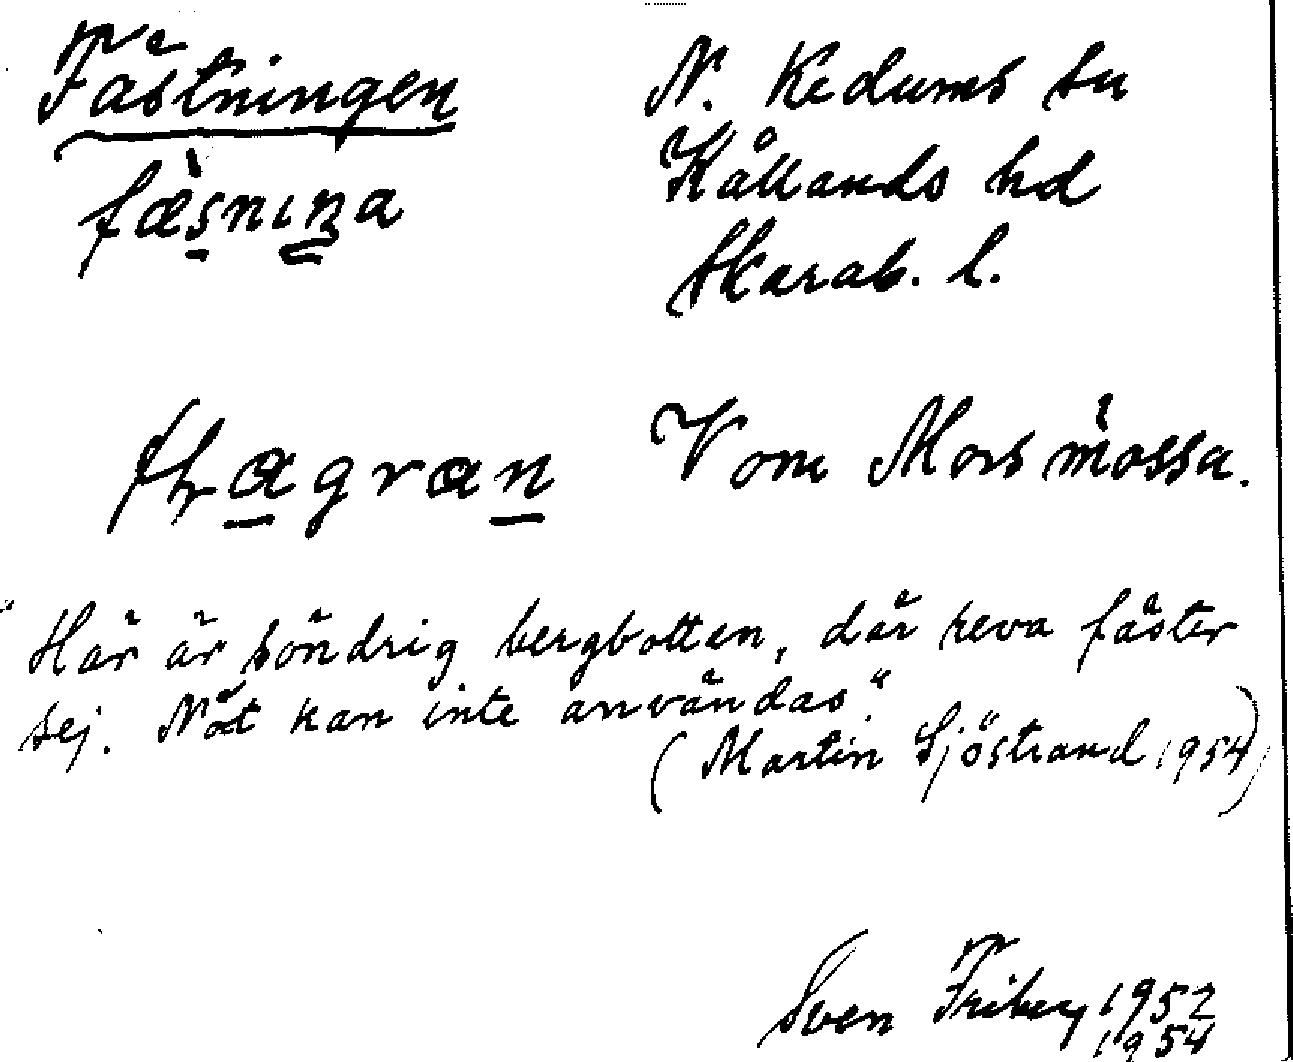 Fästningen
N. Kedums sn
Kållands hd
Skarab. l.
Vom Mors mossa.
"Här är söndrig bergbotten, där reva fäster
sej. Nät kan inte användas."
(Martin Sjöstrand 1954)
Sven Friberg 1952
1954